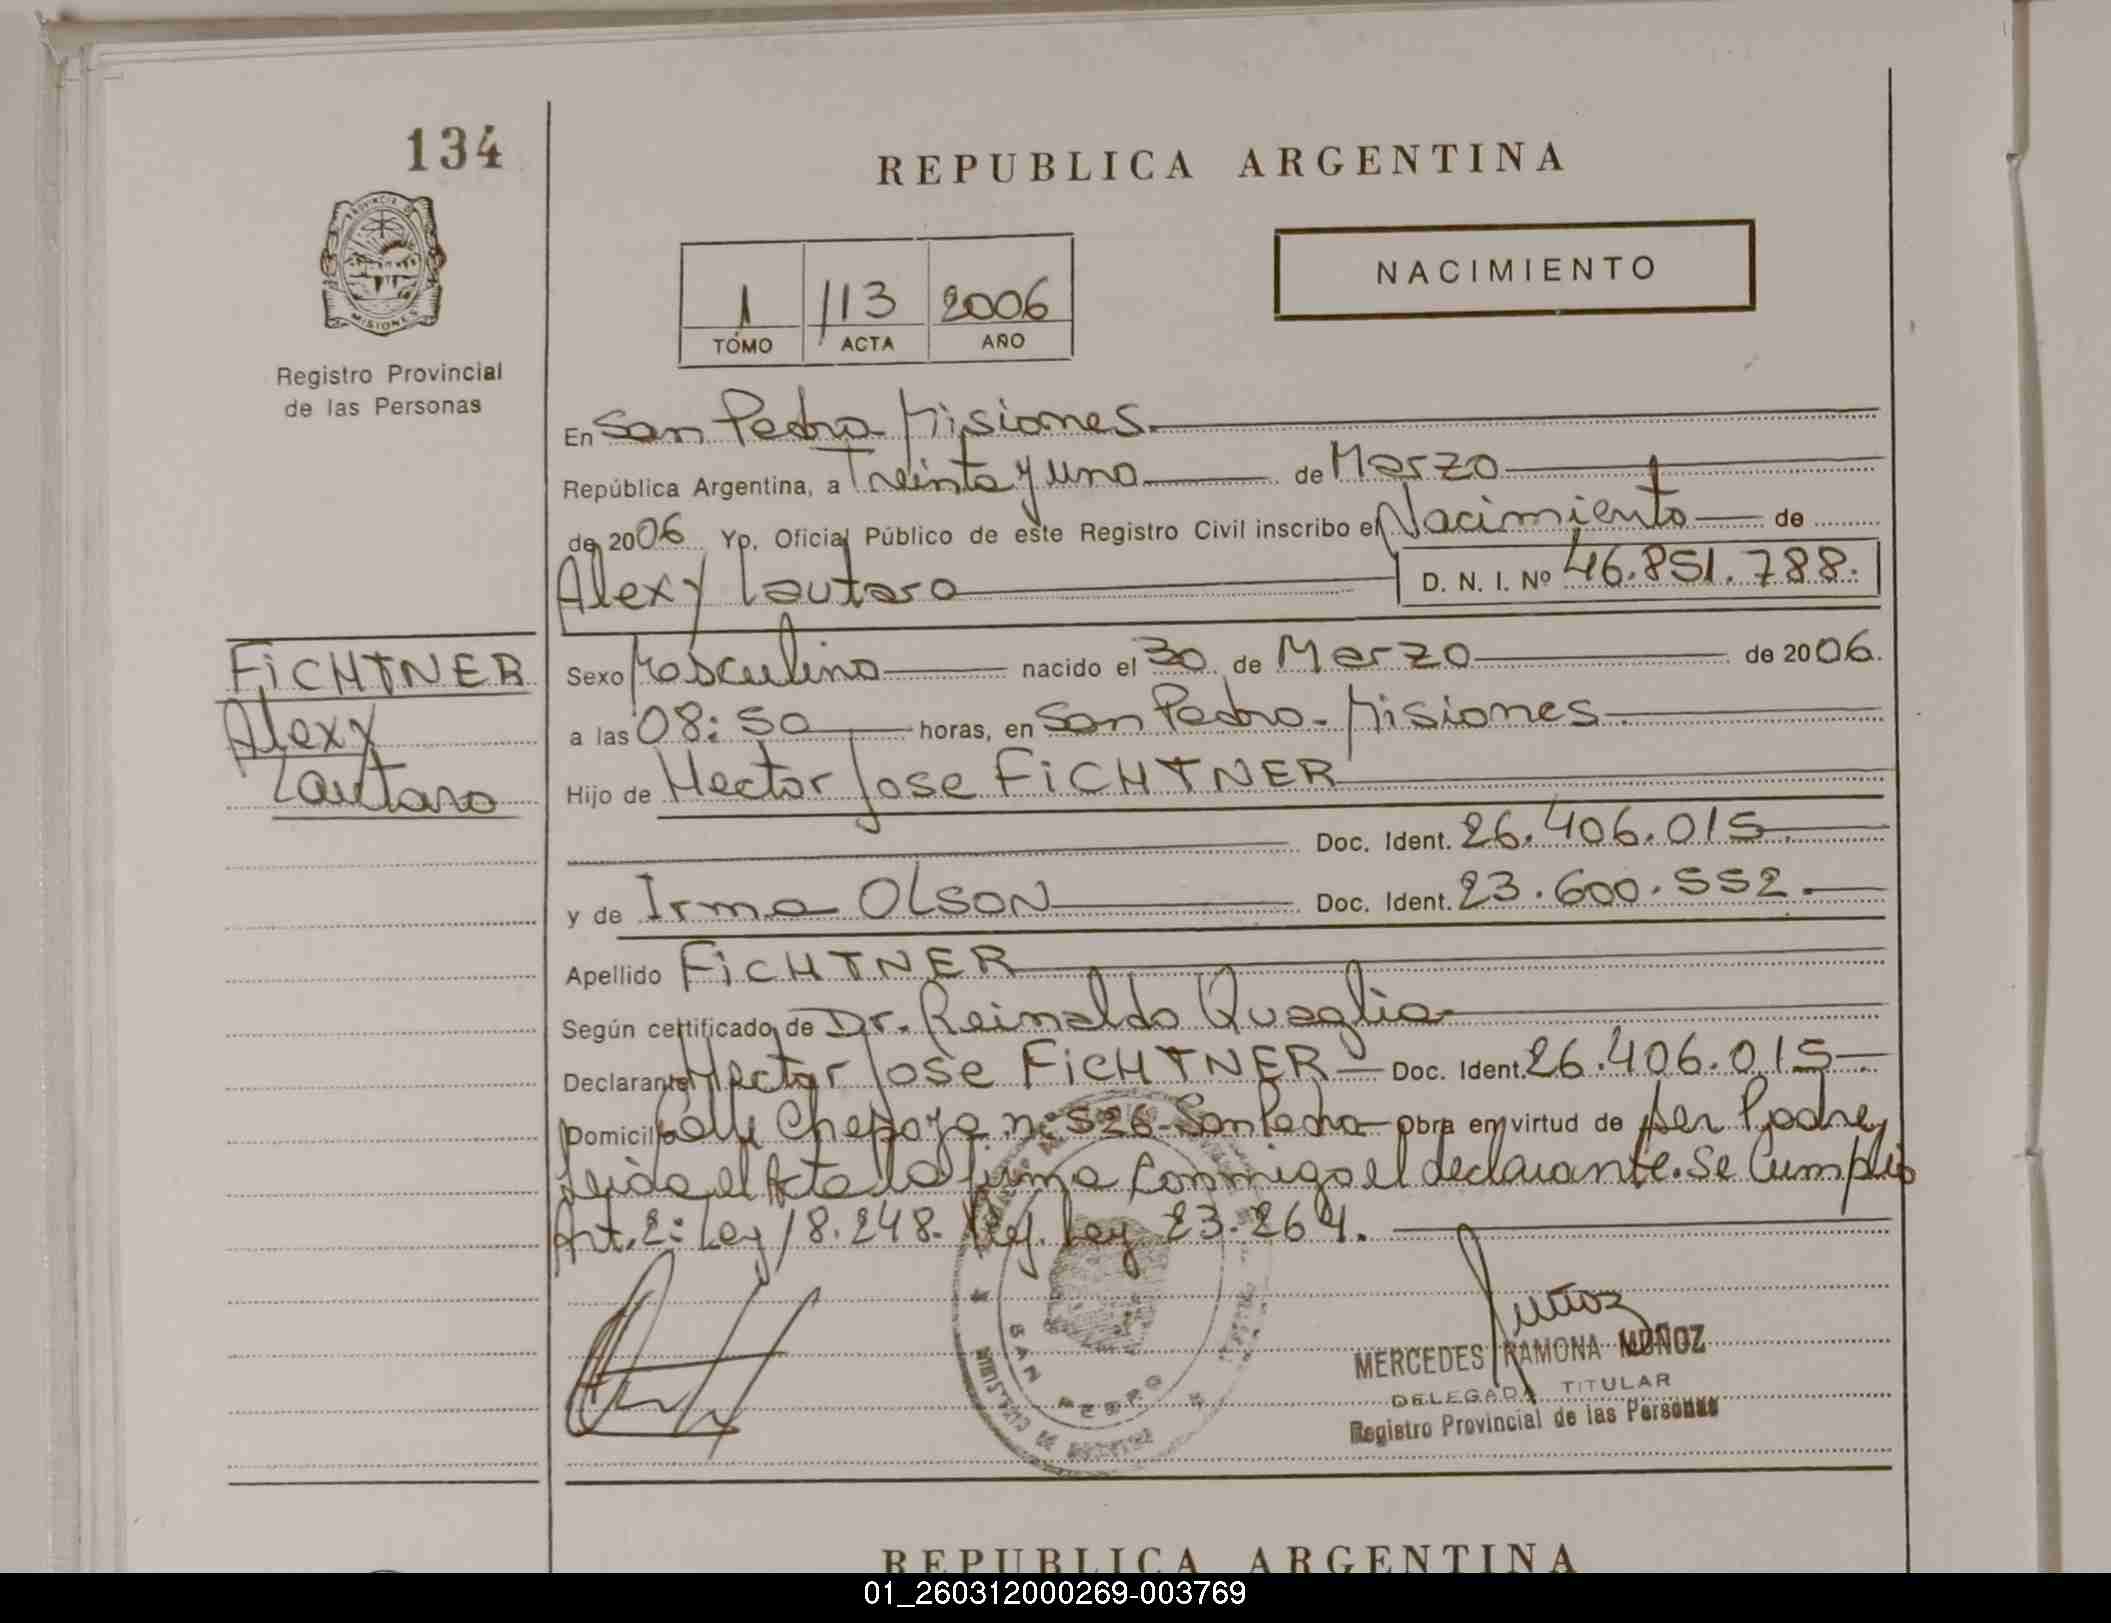 134
REPUBLICA ARGENTINA
PROVINCIA DE
MISIONES
Registro Provincial
de las Personas
1 113 2006
TOMO ACTA AÑO
NACIMIENTO
En San Pedro Misiones.
República Argentina, a Treinta y uno de Marzo
de 2006 Yo. Oficial Público de este Registro Civil inscribo el Nacimiento de
Alexy Lautaro D. N. I. Nº 46.851.788.
FiCHTNER
Alexy
Lautaro
Sexo Masculino nacido el 30 de Marzo de 2006.
a las 08:50 horas, en San Pedro - Misiones
Hijo de Hector Jose FiCHTNER
Doc. Ident. 26.406.015.
y de Irma OLSON Doc. Ident. 23.600.552.
Apellido FiCHTNER
Según certificado de Dr. Reinaldo Quaglia
Declarante Hector Jose FiCHTNER Doc. Ident. 26.406.015
Domicilio Calle nº 526 - San Pedro Obra en virtud de ser Padre,
leida el Acta la firma conmigo el declarante. Se Cumplio
Art. 2: Ley 18.248. Ley 23.264.
SAN PEDRO
Muñoz
MERCEDES RAMONA MUÑOZ
DELEGADA TITULAR
Registro Provincial de las Personas
REPUBLICA ARGENTINA
01_260312000269-003769